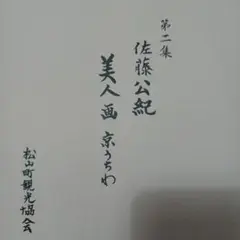 第二集
佐藤公紀
美人画 京うちわ
松山町観光協会